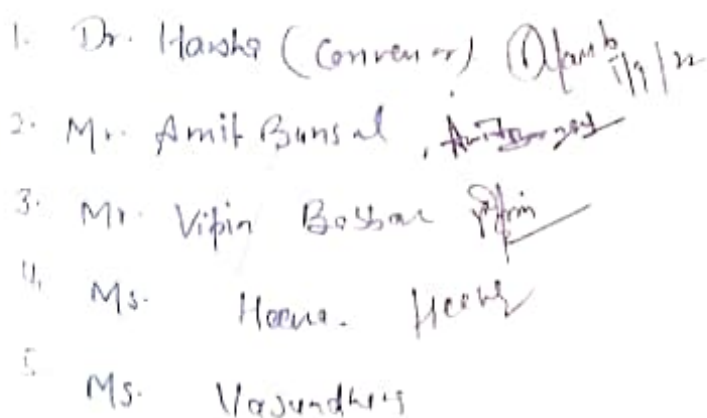 1. Dr. Harsha (Convenor) 1/9/22
2. Mr. Amit Bansal, Amit Bansal
3. Mr. Vipin Vipin
4. Ms. Heena. Heena
5 Ms. Vasundhra